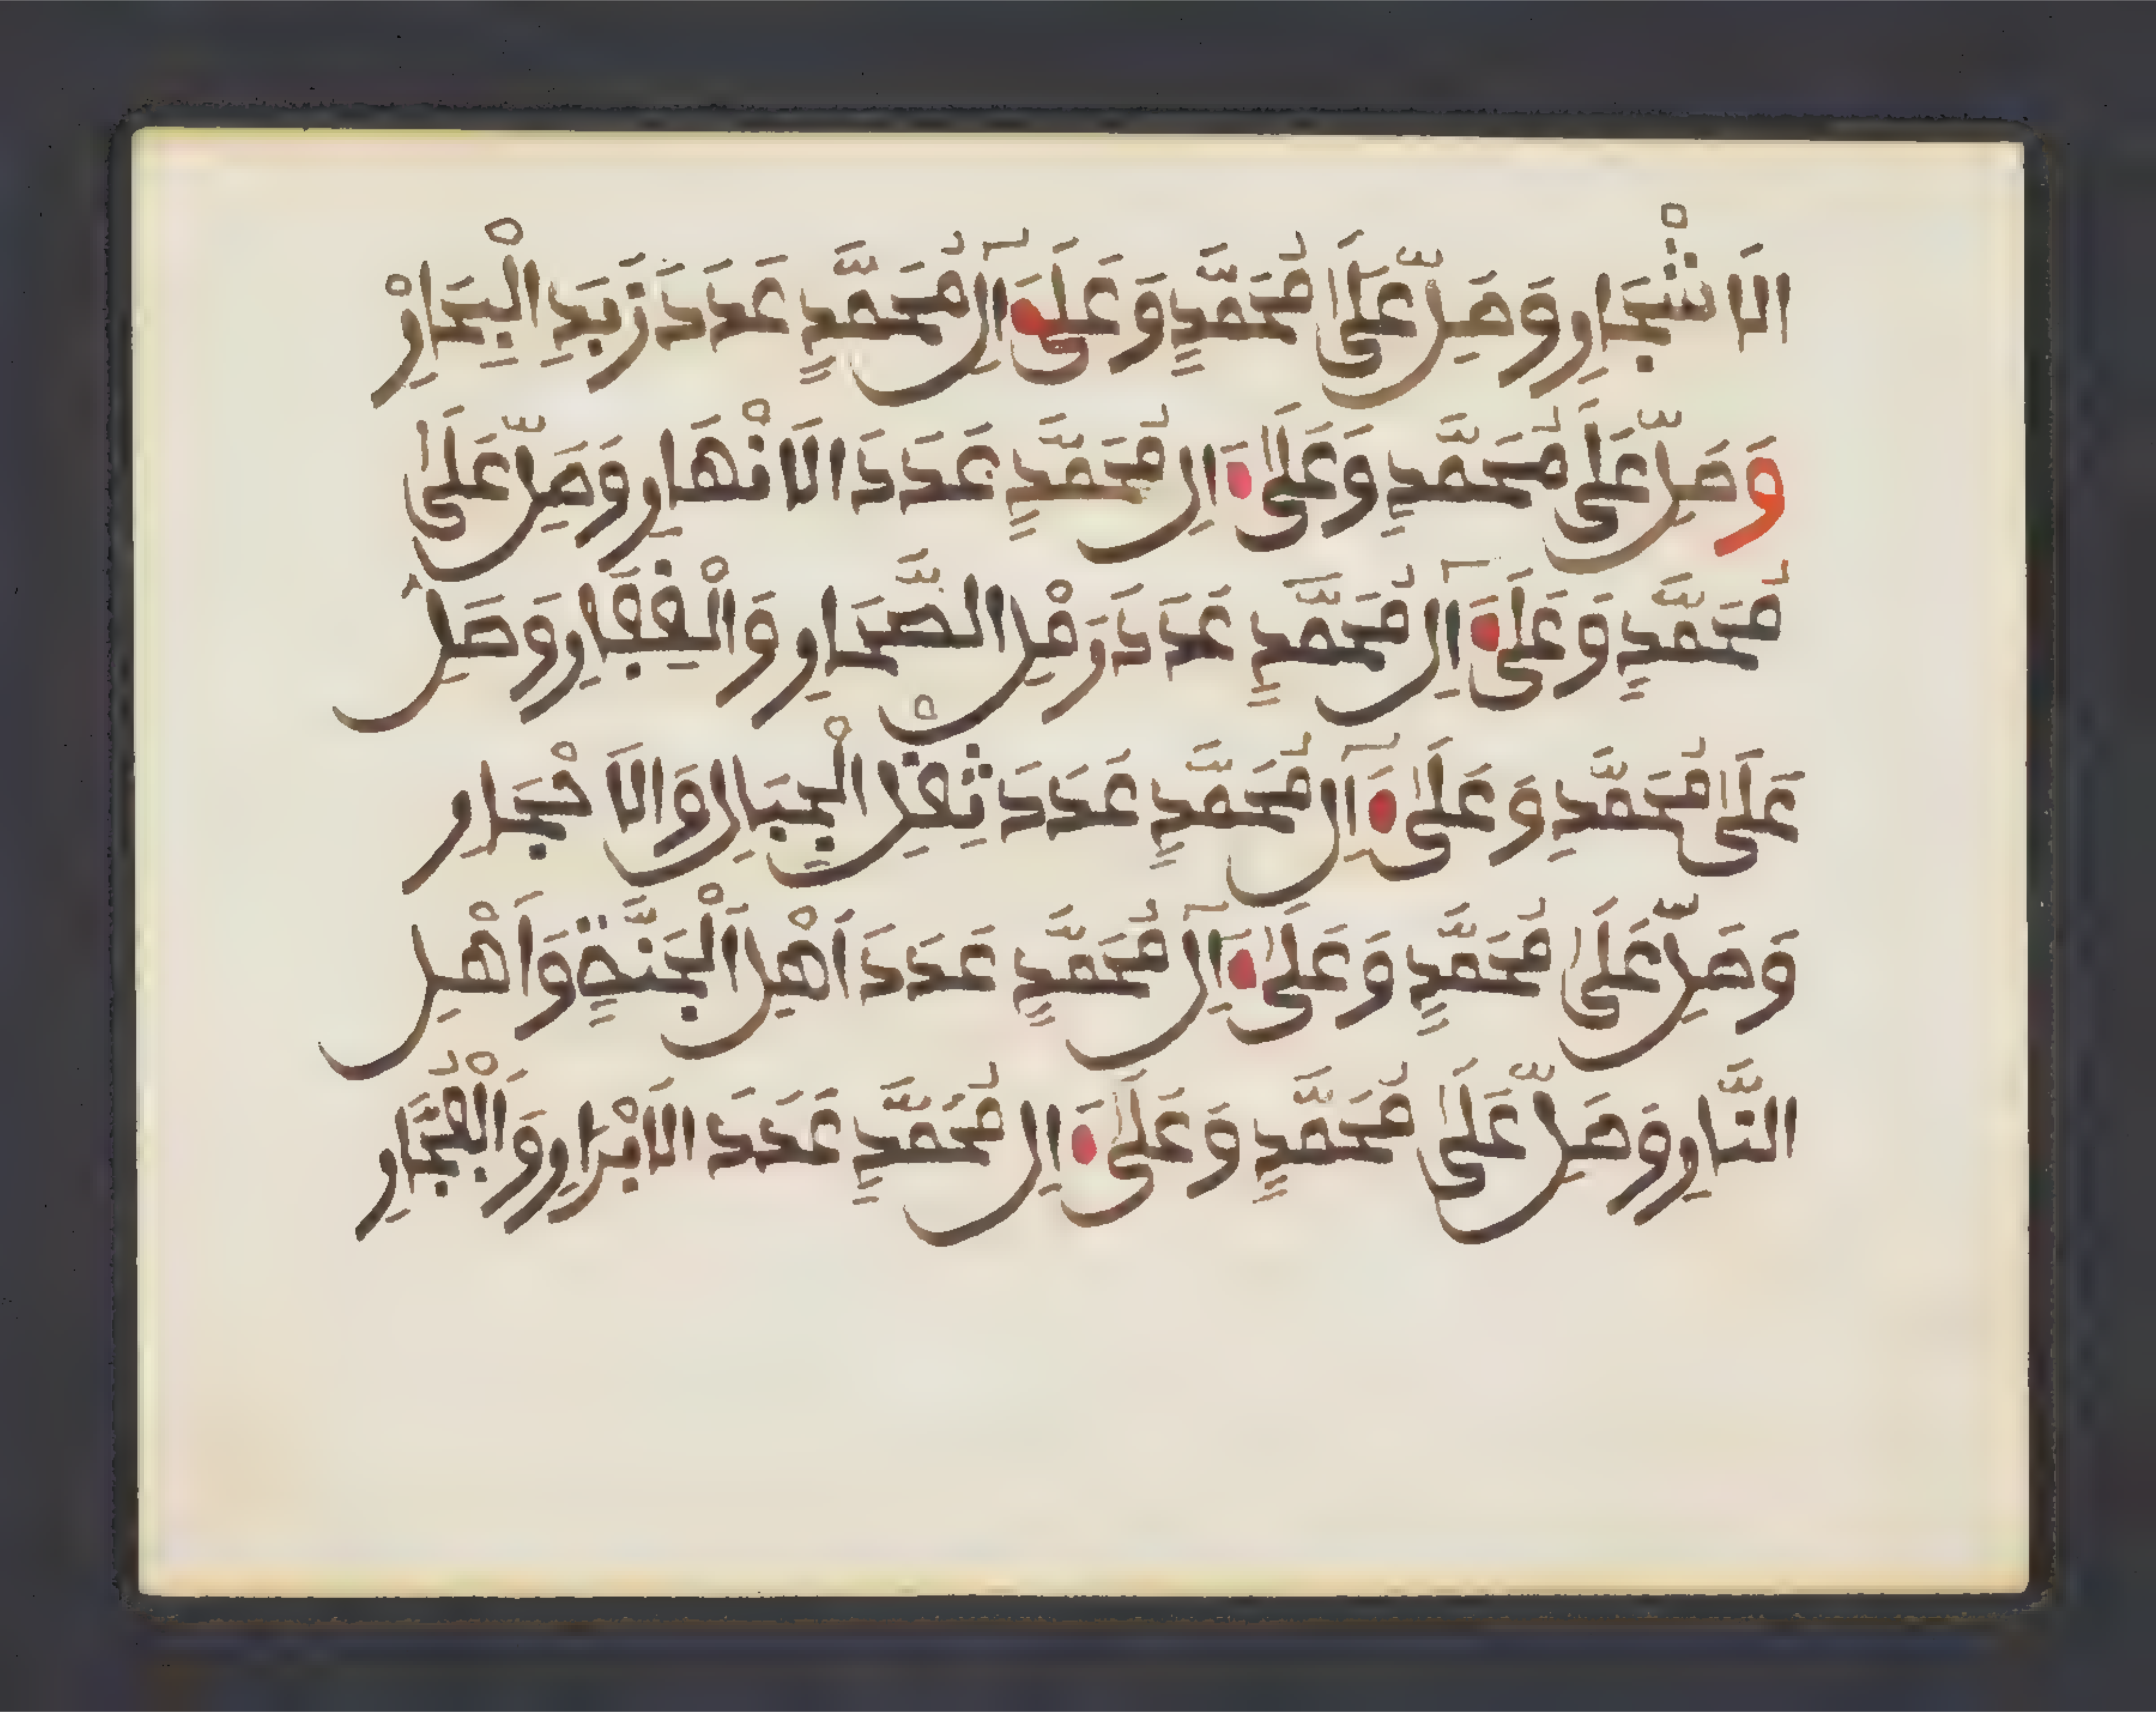 الَاشْجَارِ وَصَلِّ عَلَىٰ مُحَمَّدٍ وَعَلَىٰ آلِ مُحَمَّدٍ عَدَدَ زَبَدِ الْبِحَارْ
وَصَلِّ عَلَىٰ مُحَمَّدٍ وَعَلَىٰ الِ مُحَمَّدٍ عَدَدَ الَانْهَارِ وَصَلِّ عَلَىٰ
مُحَمَّدٍ وَعَلَىٰ آلِ مُحَمَّدٍ عَدَدَ رَمْلِ الصَّحَارِ وَالْقِفَارِ وَصَلِّ
عَلَىٰ مُحَمَّدٍ وَعَلَىٰ آلِ مُحَمَّدٍ عَدَدَ ثِقْلِ الْجِبَالِ وَالَاحْجَارِ
وَصَلِّ عَلَىٰ مُحَمَّدٍ وَعَلَىٰ آلِ مُحَمَّدٍ عَدَدَ اَهْلِ الْجَنَّةِ وَاَهْلِ
النَّارِ وَصَلِّ عَلَىٰ مُحَمَّدٍ وَعَلَىٰ الِ مُحَمَّدٍ عَدَدَ الَابْرَارِ وَالْفُجَّارِ